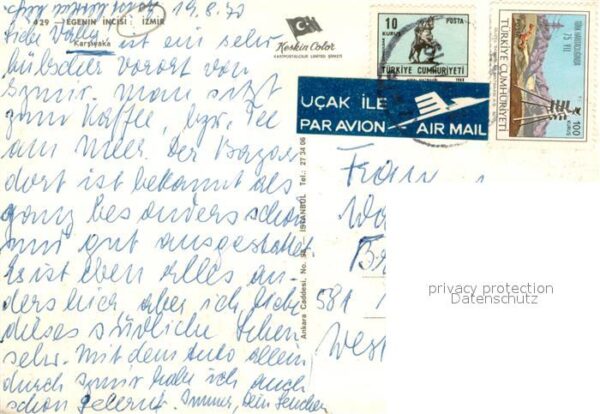 429 - EGENİN İNCİSİ : İZMİR
19.8.73
Karşıyaka
ist ein sehr
hübscher Vorort von
Izmir. Man sitzt
zum Kaffee, bzw. Tee
am Meer. Der Bazar
dort ist bekannt als
ganz besonders schön
und gut ausgestattet.
Es ist eben alles an-
ders hier, aber ich liebe
dieses südliche Leben
sehr. Mit dem Auto allein
durch Izmir habe ich auch
schon gelernt. Immer,
Keskin Color
KARTPOSTALCILIK LİMİTED ŞİRKETİ
Ankara Caddesi. No. İSTANBUL Tel.: 27 34 06
10
KURUŞ
POSTA
TÜRKİYE CUMHURİYETİ
75 YILI
TÜRKİYE CUMHURİYETİ
100
UÇAK İLE
PAR AVION AIR MAIL
581
West
privacy protection
Datenschutz